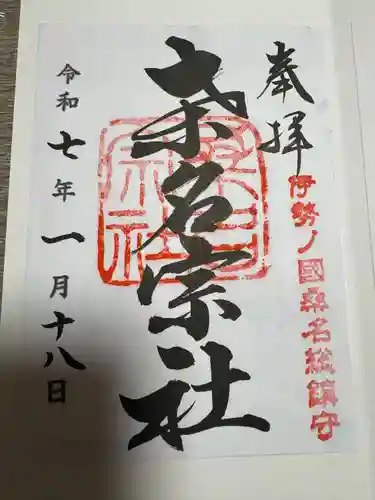 奉拝
伊勢ノ國桑名総鎮守
桑名宗社
令和七年一月十八日